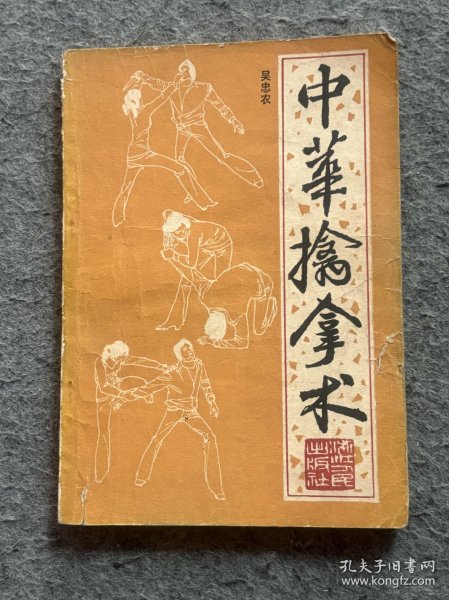 吴忠农
中華擒拿术
浙江人民
出版社
孔夫子旧书网
www.kongfz.com